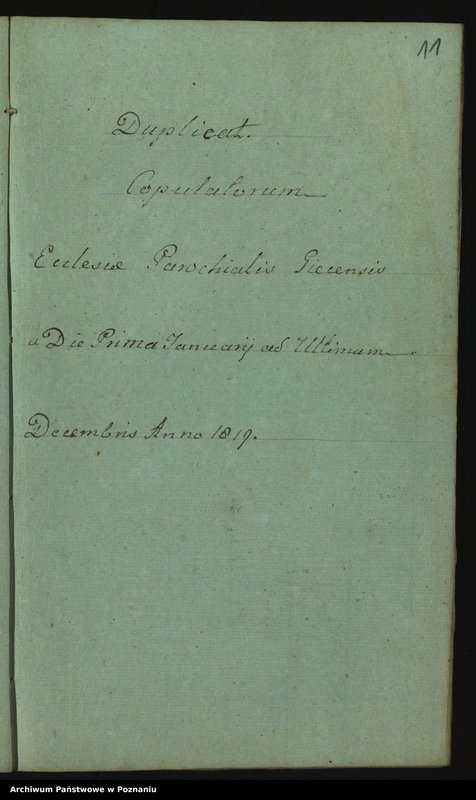 11
Duplicat.
Copulatorum
Ecclesiæ Parochialis Giecensis
a Die Prima Januarij ad Ultimam
Decembris Anno 1819.
Archiwum Państwowe w Poznaniu